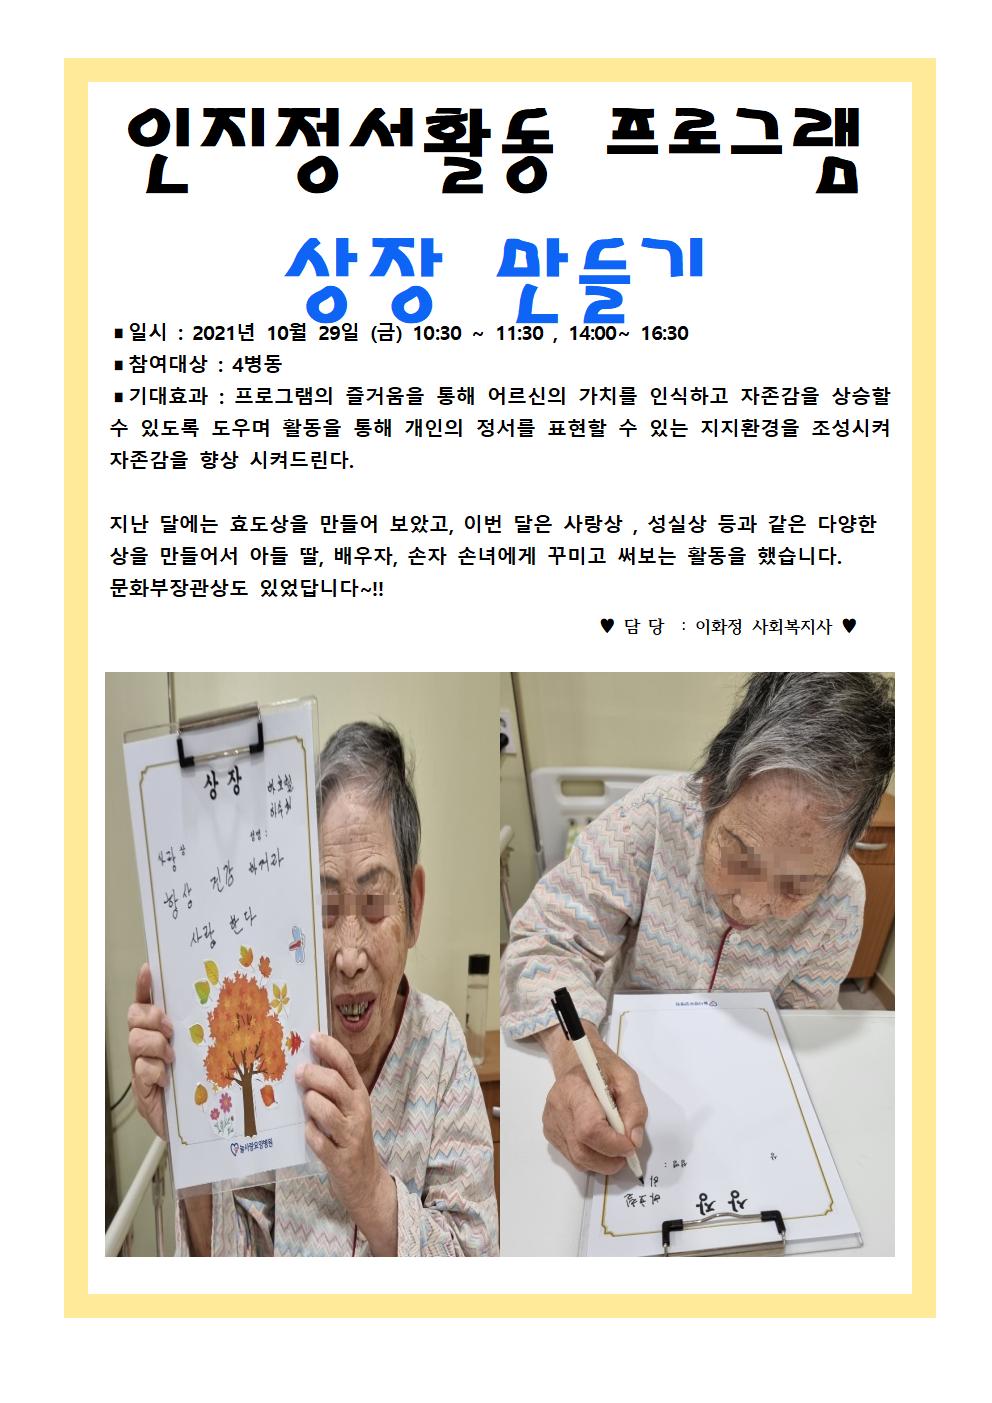 인지정서활동 프로그램
상장 만들기
∎일시 : 2021년 10월 29일 (금) 10:30 ~ 11:30 , 14:00~ 16:30
∎참여대상 : 4병동
∎기대효과 : 프로그램의 즐거움을 통해 어르신의 가치를 인식하고 자존감을 상승할
수 있도록 도우며 활동을 통해 개인의 정서를 표현할 수 있는 지지환경을 조성시켜
자존감을 향상 시켜드린다.
지난 달에는 효도상을 만들어 보았고, 이번 달은 사랑상 , 성실상 등과 같은 다양한
상을 만들어서 아들 딸, 배우자, 손자 손녀에게 꾸미고 써보는 활동을 했습니다.
문화부장관상도 있었답니다~!!
♥ 담 당 : 이화정 사회복지사 ♥
상 장
성명 :
사랑 상
항상 건강 하거라
사랑 한다
늘사랑요양병원
상 장
성명 :
상